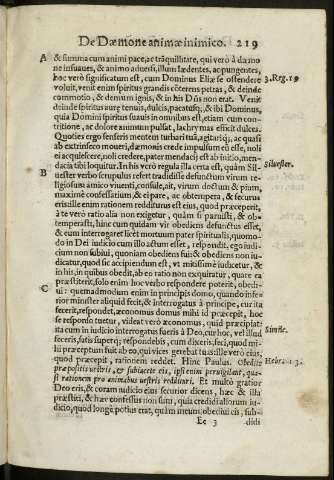 De Dæmone animæ inimico. 219
A & summa cum animi pace, ac trãquillitate, qui verò à dæmo
ne insuaues, & animo aduersi, illum lædentes, ac pungentes,
hoc verò significatum est, cum Dominus Eliæ se ostendere 3. Reg. 19
voluit, venit enim spiritus grandis cõterens petras, & deinde
commotio, & demum ignis, & in his Dñs non erat. Venit
deinde spiritus auræ tenuis, dulcis, pacatusq;, & ibi Dominus,
quia Domini spiritus suauis in omnibus est, etiam cum con-
tritione, ac dolore animum pulsat, lachrymas efficit dulces.
Quoties ergo senseris mentem turbari tuã, agitariq;, ac quasi
ab extrinseco moueri, dæmonis crede impulsum eũ esse, noli
ei acquiescere, noli credere, pater mendacij est ab initio, men-
dacia tibi loquitur. In his verò regula illa certa est, quàm Sil- Silvester.
B uester verbo scrupulus refert tradidisse defunctum virum re-
ligiosum amico viuenti, consule, ait, virum doctum & pium,
maximè confessarium, & ei pare, ac obtempera, & securus
eris: ille enim rationem redditurus est eius, quod præceperit,
à te verò ratio alia non exigetur, quàm si paruisti, & ob-
temperasti, hinc cum quidam vir obediens defunctus esset,
& cum interrogaret licet mortuum pater spiritualis, quomo-
do in Dei iudicio cum illo actum esset, respondit, ego iudi-
cium non subiui, quoniam obediens fui: & obediens non iu-
dicatur, quod sic accipiendum est, vt mitissimè iudicetur, &
in his, in quibus obedit, ab eo ratio non exquiratur, quare ea
præstiterit, solo enim hoc verbo respondere poterit, obedi-
C ui: quemadmodum enim in principis domo, quando infe-
rior minister aliquid fecit, & interrogatus à principe, cur ita
fecerit, respondet, æconomus domus mihi id præcepit, hoc
se responso tuetur, videat verò æconomus, quid præcipiat:
ita cum in iudicio interrogatus fueris à Deo, cur hoc, vel illud Simile.
feceris, satis superq; respondebis, cum dixeris, feci, quod mi-
hi præceptum fuit ab eo, qui vices gerebat tuas: ille verò eius,
quod præcepit, rationem reddet. Hinc Paulus. Obedite Hebræ. 13.
præpositis vestris, & subiacete eis, ipsi enim peruigilant, qua-
si rationem pro animabus vestris reddituri. Et multò gratior
Deo eris, & coram iudicio eius securior dicens, hæc & illa
præstiti, & hæc confessus non sum, quia credidi aliorum iu-
dicio, quod longè potius erat, quàm meum: obediui eis, sub-
Ee 3 didi